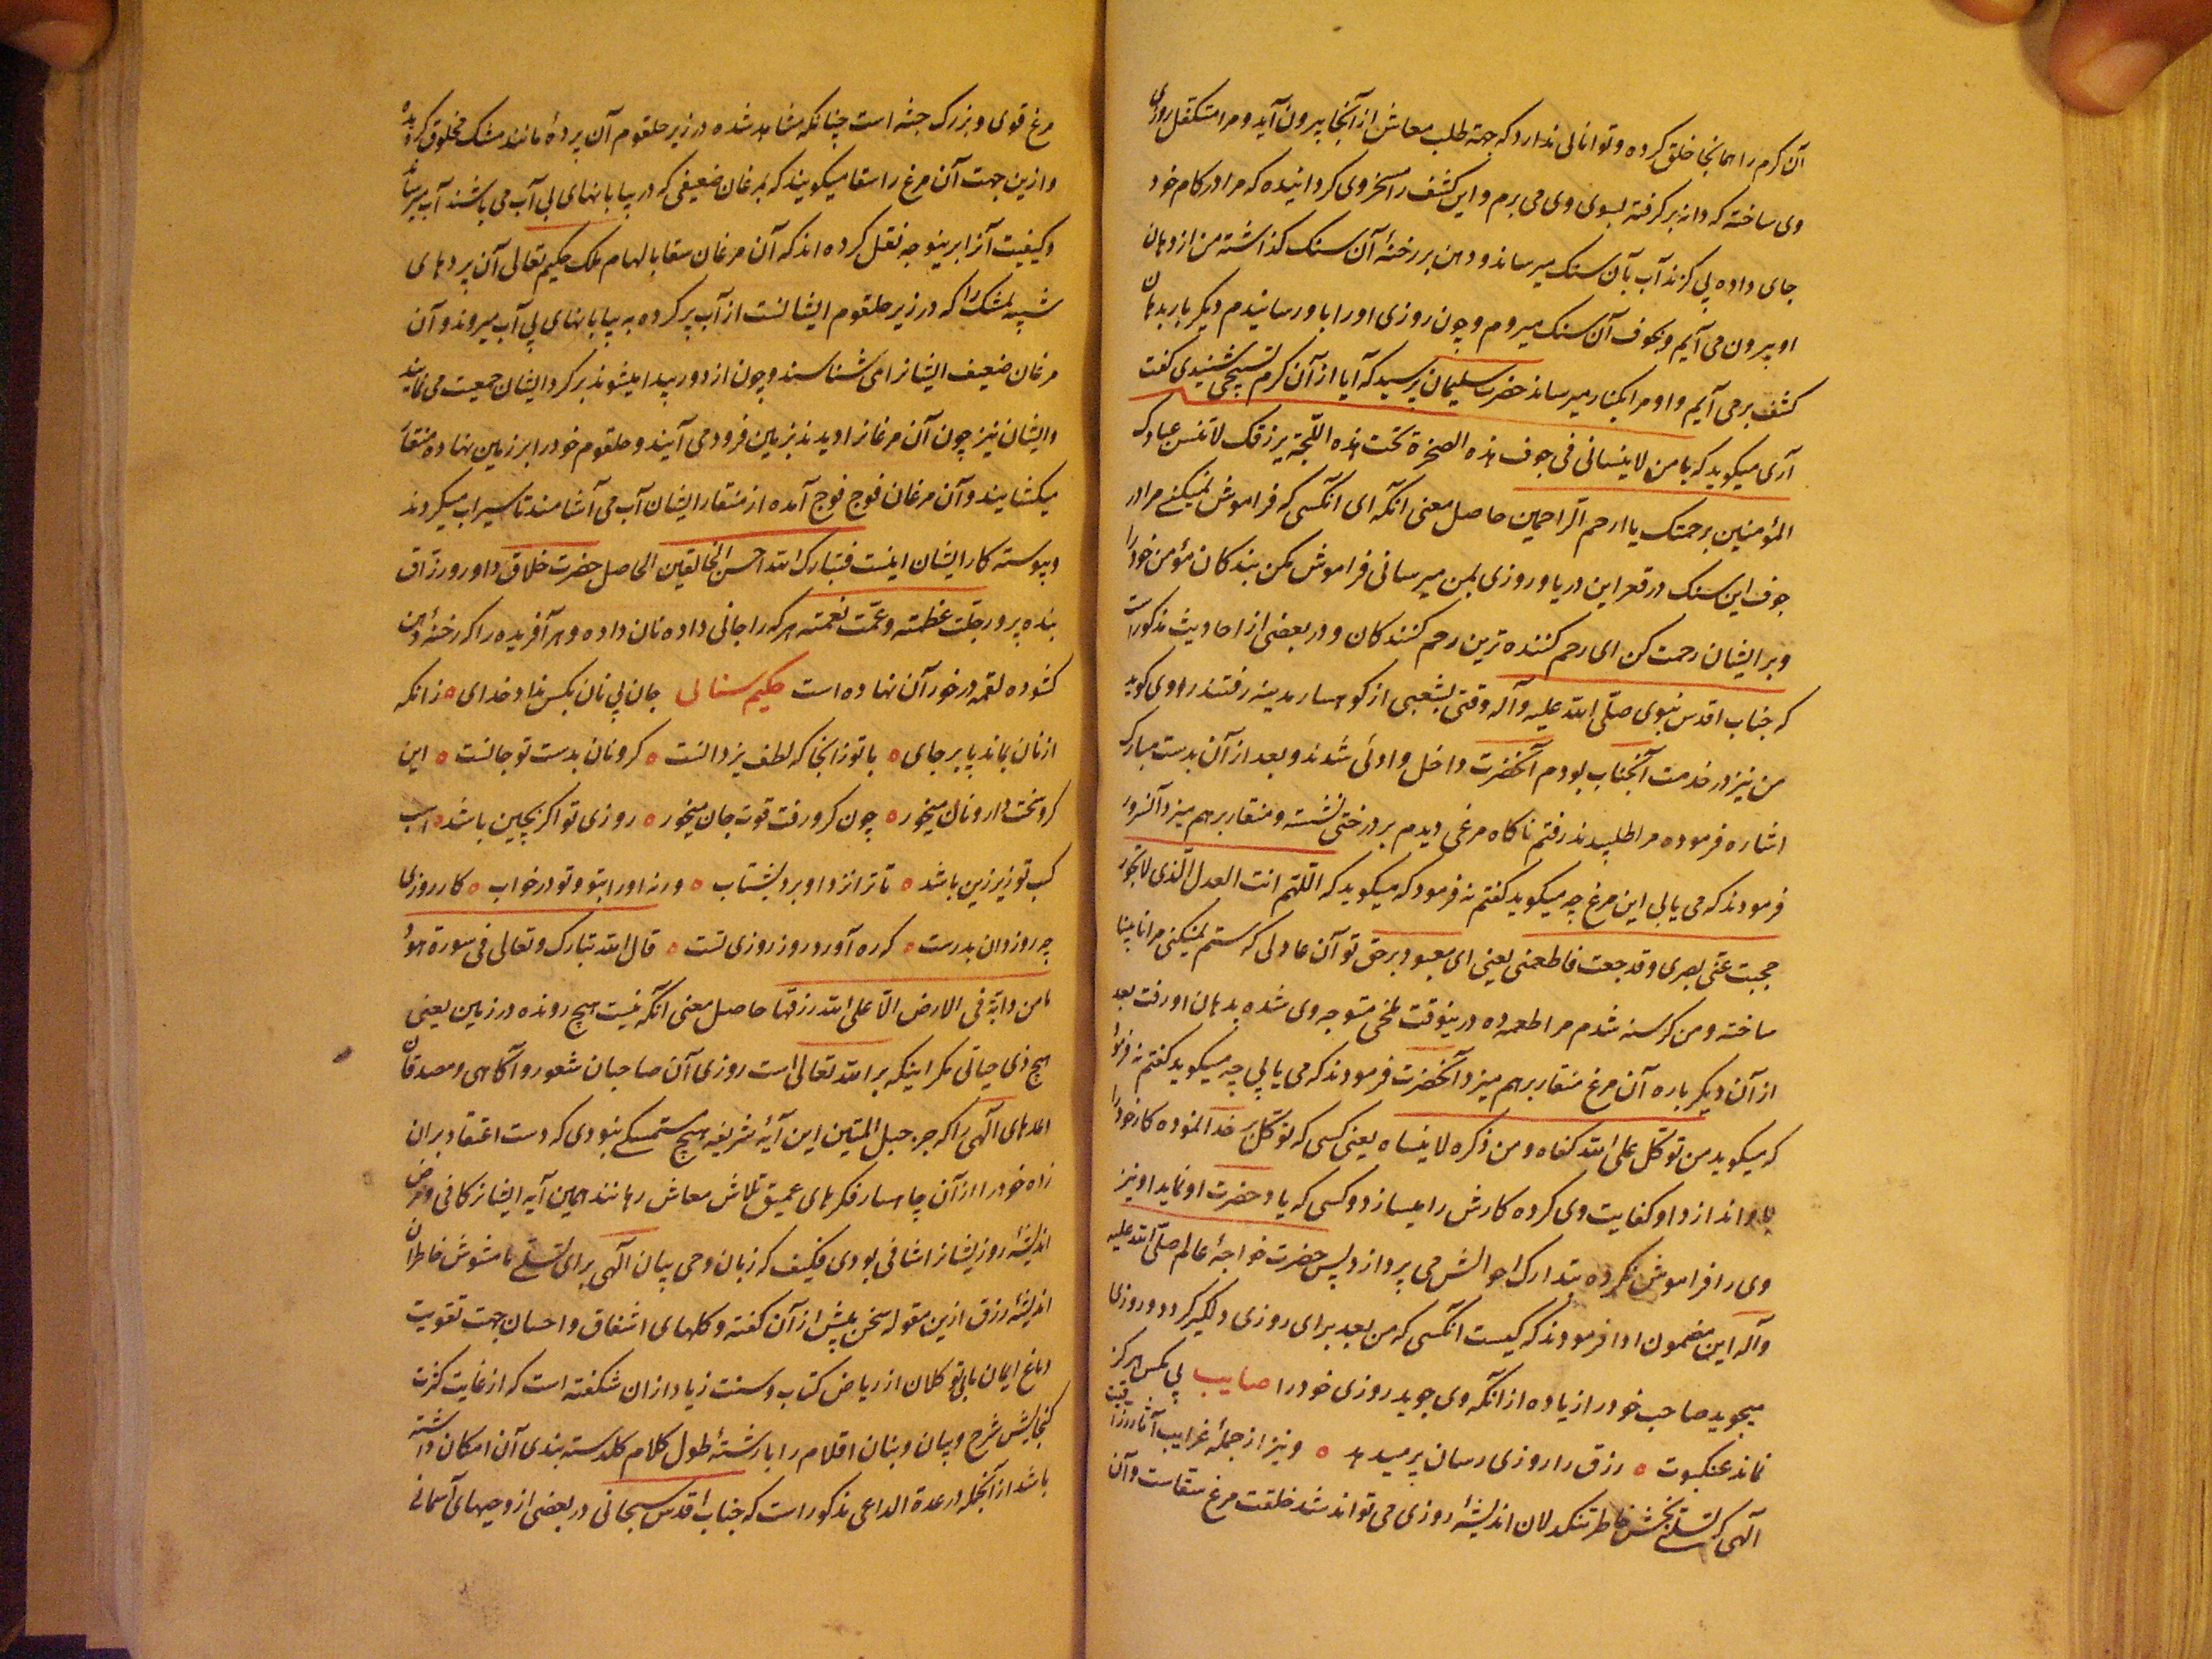 آن کرم را همانجا خلق کرده و توانائی ندارد که جهة طلب معاش از آنجا بیرون آید و مرا متکفل روزی
وی ساخته که دانه بر گرفته بسوی وی می برم و این کشف را مسخر وی گردانیده که مرا در کام خود
جای داده پی گزند آب بآن سنگ میرساند و دهن بر رخنهٔ آن سنگ گذاشته من از دهان
او بیرون می آیم و بجوف آن سنگ میروم و چون روزی او را باو رسانیدم دیگر بار بدهان
کشف برمی آیم و او مرا بکنار میرساند حضرت سلیمان پرسید که آیا از آن کرم تسبیحی شنیدی گفت
آری میگوید که یا من لا ینسانی فی جوف هذه الصخرة تحت هذه اللجة برزقک لا تنس عبادک
المؤمنین برحمتک یا ارحم الراحمین حاصل معنی آنکه ای آنکسی که فراموش نمیکنی مرا در
جوف این سنگ در قعر این دریا و روزی بمن میرسانی فراموش مکن بندکان مؤمن خود را
و بر ایشان رحمت کن ای رحم کننده ترین رحم کنندکان و در بعضی از احادیث مذکور است
که جناب اقدس نبوی صلّی الله علیه وآله وقتی بشعبی از کوهسار مدینه رفتند راوی گوید
من نیز در خدمت آنجناب بودم آنحضرت داخل وادئی شدند و بعد از آن بدست مبارک
اشاره فرموده مرا طلبیدند رفتم ناکاه مرغی دیدم بر درختی نشسته و منقار برهم میزد آنسرور
فرمودند که می یابی این مرغ چه میگوید گفتم نه فرمود که میگوید که اللّهم انت العدل الّذی لا تجور
حجبت عنّی بصری و قد جعت فاطعمنی یعنی ای معبود برحق تو آن عادلی که ستم نمیکنی مرا نابینا
ساخته و من گرسنه شدم مرا طعمه ده درینوقت ملخی متوجه وی شده بدهان او رفت بعد
از آن دیگر باره آن مرغ منقار برهم میزد آنحضرت فرمودند که می یابی چه میگوید گفتم نه فرمود
که میگوید من توکّل علی الله کفاه و من ذکره لا ینساه یعنی کسی که توکّل بر خدا نموده کار خود را
باو اندازد او کفایت وی کرده کارش را میسازد و کسی که یاد حضرت او نماید او نیز
وی را فراموش نکرده بتدارک احوالش می پردازد پس حضرت خواجهٔ عالم صلّی الله علیه
وآله این مضمون ادا فرمودند که کیست آنکسی که من بعد برای روزی دلگیر گردد و روزی
میجوید صاحب خود را زیاده از آنکه وی جوید روزی خود را صایب پی مکس هرگز
نماند عنکبوت ه رزق را روزی رسان پر میدهد ه و نیز از جمله غرایب آثار رزاقیت
آلهی که تسلی بخش خاطر تنکدلان اندیشهٔ روزی می تواند شد خلقت مرغ سقاست و آن
مرغ قوی و بزرک جثه است چنانکه مشاهد شده در زیر حلقوم آن پردهٔ مانند مشک مخلوق گردیده
و ازین جهت آن مرغ را سقا میگویند که بمرغان ضعیفی که در بیابانهای بی آب می باشند آب میرساند
و کیفیت آنرا برینوجه نقل کرده اند که آن مرغان سقا بالهام ملک حکیم تعالی آن پردهای
شبیه بمشک را که در زیر حلقوم ایشانست از آب پر کرده به بیابانهای بی آب میروند و آن
مرغان ضعیف ایشانرا می شناسند و چون از دور پیدا میشوند بر گرد ایشان جمعیت می نمایند
و ایشان نیز چون آن مرغانرا دیدند بزمین فرود می آیند و حلقوم خود را بر زمین نهاده منقار
میکشایند و آن مرغان فوج فوج آمده از منقار ایشان آب می آشامند تا سیراب میگردند
و پیوسته کار ایشان اینست فتبارک الله احسن الخالقین الحاصل حضرت خلاق داور و رزّاق
بنده پرور جلّت عظمته و عمّت نعمته هر که را جانی داده نان داده و هر آفریده را که رخنهٔ دهن
گشوده لقمه در خور آن نهاده است حکیم سنائی جان پی نان بکس نداد خدای ه زانکه
از نان بماند پا بر جای ه با تو ز آنجا که لطف یزدانست ه گرو نان بدست تو جانست ه این
گرو سخت دار و نان میخور ه چون گرو رفت قوت جان میخور ه روزی تو اگر بچین باشد ه اسب
کسب تو زیر زین باشد ه تا ترا نزد او برد بشتاب ه ورنه او را بتو و تو در خواب ه کار روزی
چه روز دان بدرست ه که ره آورد روز روزی تست ه قال الله تبارک و تعالی فی سورة هود
ما من دابّة فی الارض الّا علی الله رزقها حاصل معنی آنکه نیست هیچ رونده در زمین یعنی
هیچ ذی حیاتی مگر اینکه بر الله تعالی است روزی آن صاحبان شعور و آکاهی و مصدقان
آلهی را که جز حبل المتین این آیهٔ شریفه هیچ متمسکی نبودی که دست اعتقاد بر آن
زده خود را از آن چاهسار فکرهای عمیق تلاش معاش رهانند همین آیه ایشانرا کافی و مرض
اندیشهٔ روزیشانرا شافی بودی فکیف که زبان وحی بیان آلهی برای تسلّی مشوش خاطران
اندیشهٔ رزق ازین مقوله سخن بیش از آن گفته و گلهای اشفاق و احسان جهت تقویت
دماغ ایمان بی توکلان از ریاض کتاب و سنت زیاد از آن شکفته است که از غایت کثرت
گنجایش شرح و بیان و بنان اقلام را با رشتهٔ طول کلام گلدسته بندی آن امکان داشته
باشد از آنجمله در عدة الداعی مذکور است که جناب اقدس سبحانی در بعضی از وحیهای آسمانی